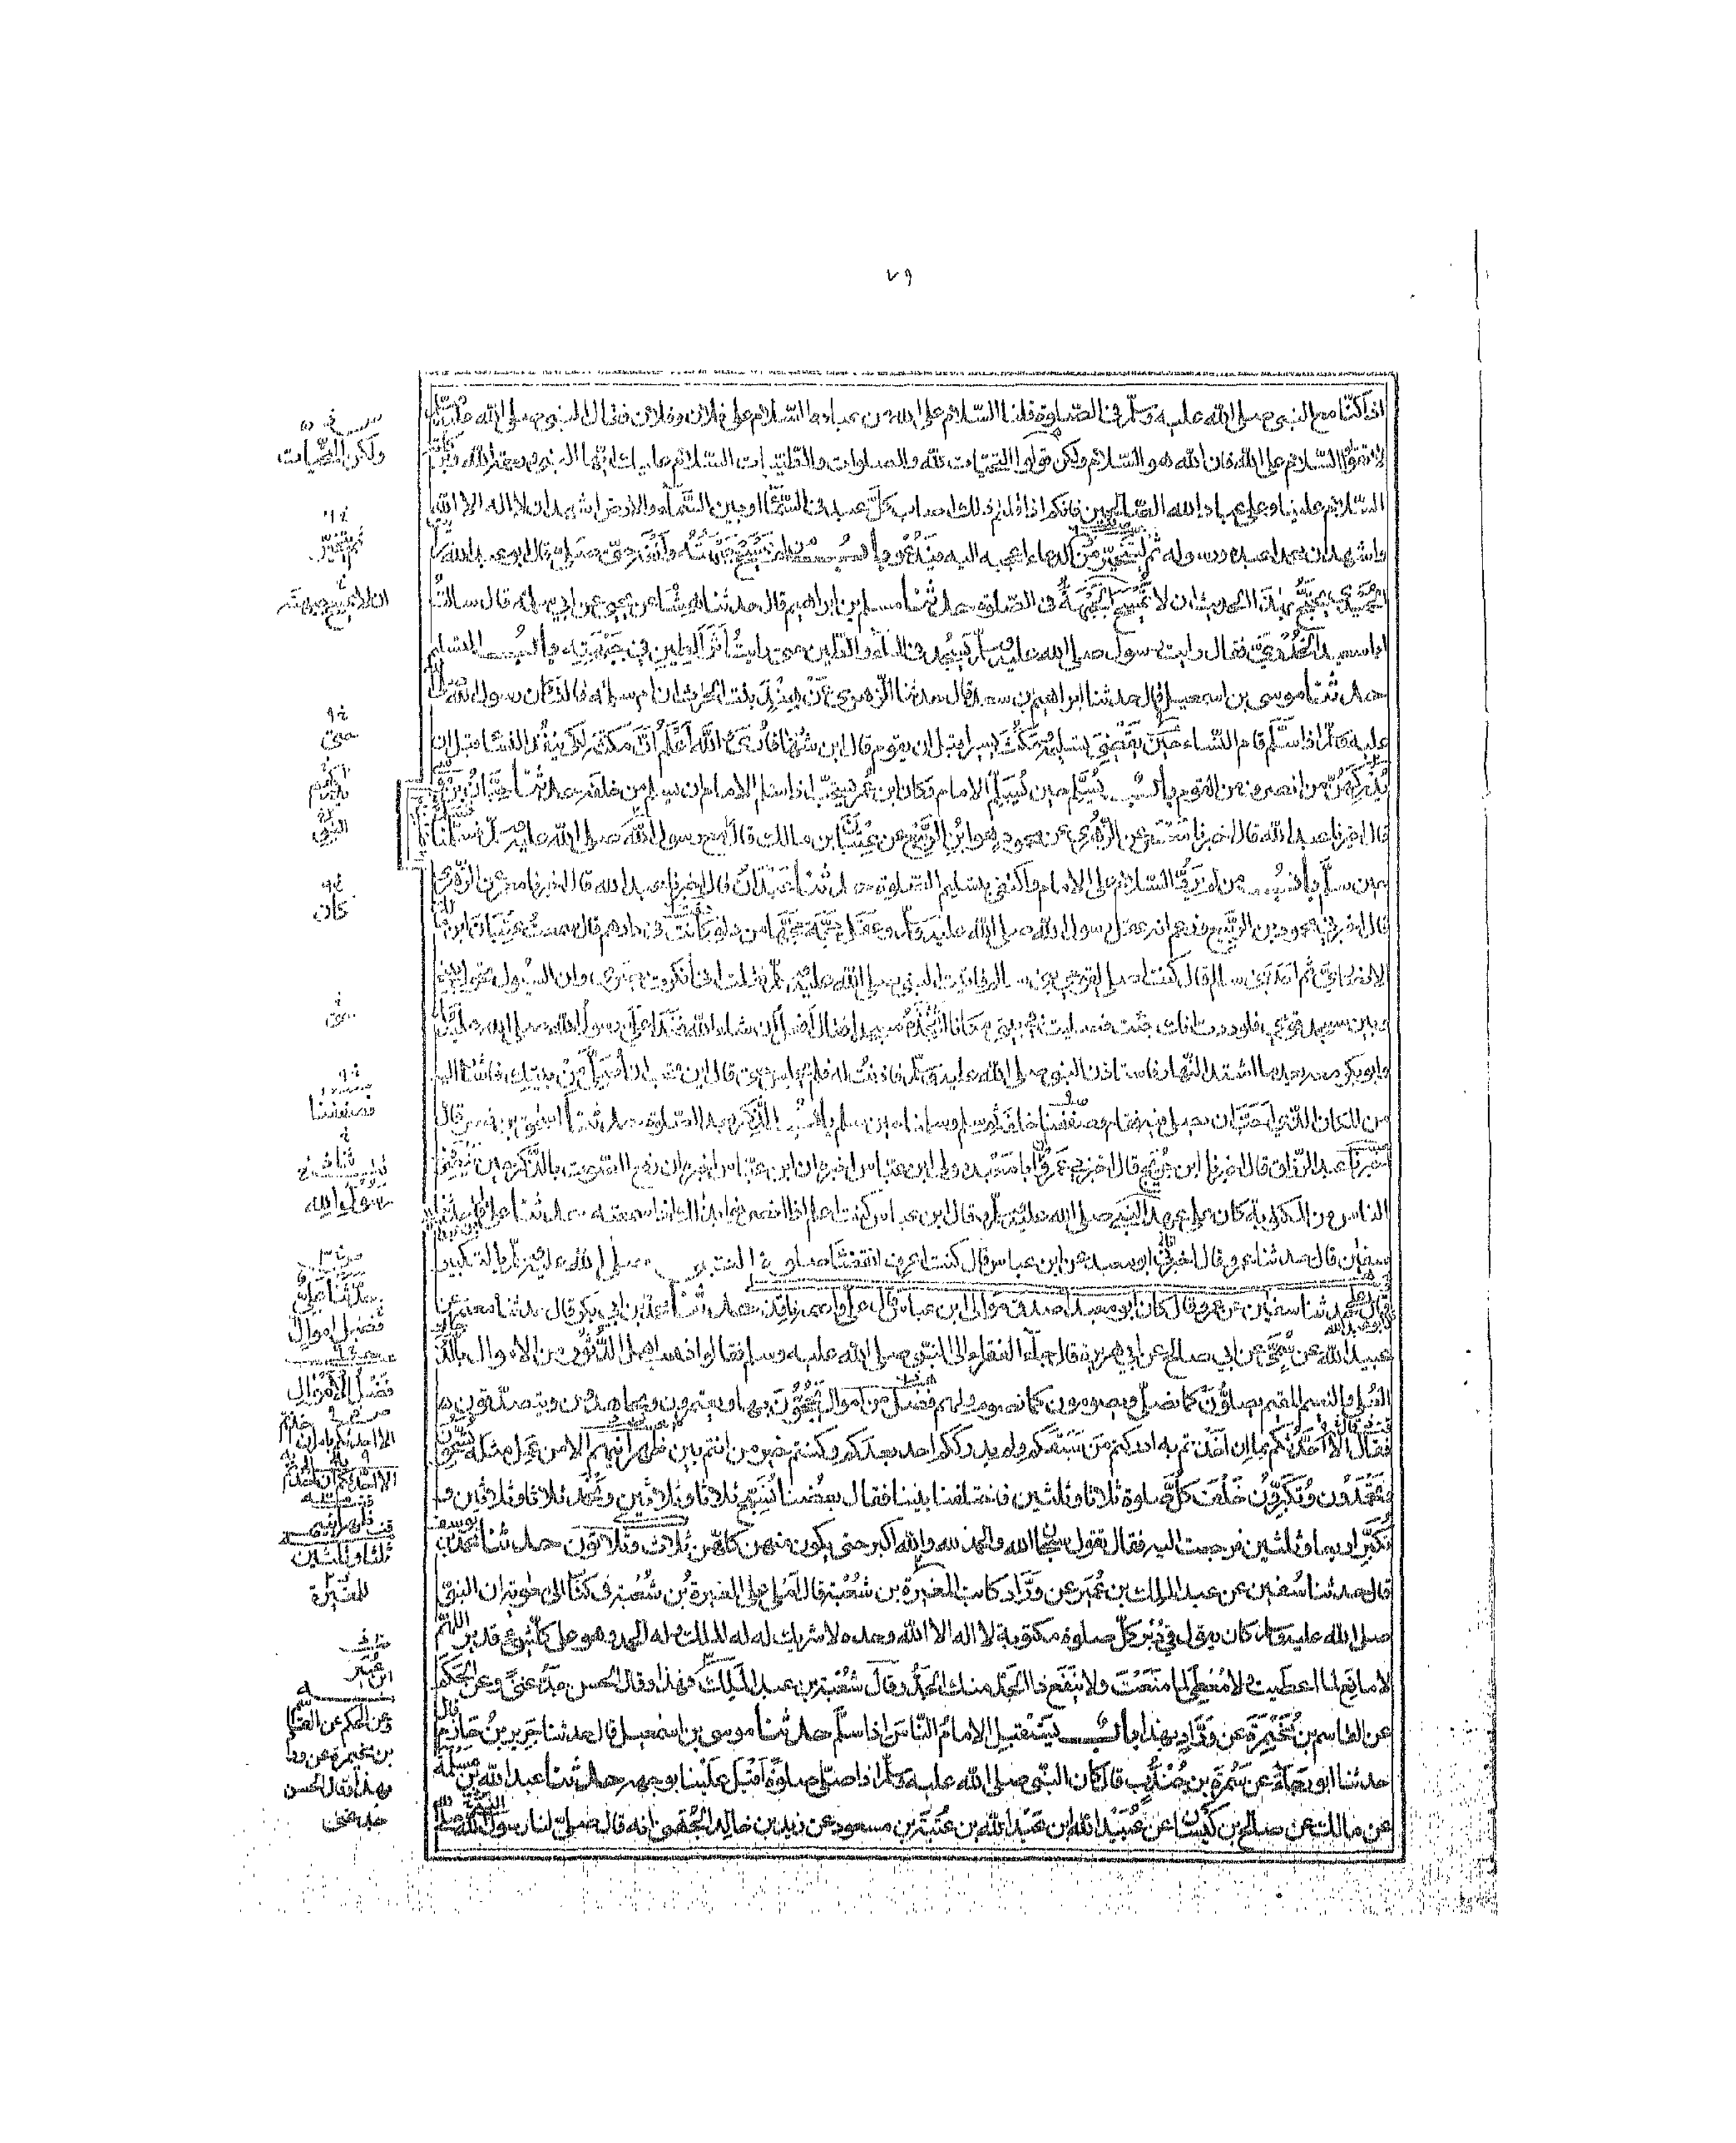 ٧٩
اذا كنا مع النبي صلى الله عليه وسلم في الصلوة قلنا السلام على الله من عباده السلام على فلان وفلان فقال النبي صلى الله عليه
لا تقولوا السلام على الله فان الله هو السلام ولكن قولوا التحيات لله والصلوات والطيبات السلام عليك ايها النبي ورحمة الله وبركاته
السلام علينا وعلى عباد الله الصالحين فانكم اذا قلتم ذلك اصاب كل عبد في السماء او بين السماء والارض اشهد ان لا اله الا الله
واشهد ان محمدا عبده ورسوله ثم ليتخير من الدعاء اعجبه اليه فيدعو باب من لم يمسح جبهته وانفه حتى صلى قال ابو عبد الله
الحميدي يحتج بهذا الحديث ان لا يمسح الجبهة في الصلوة حدثنا مسلم بن ابراهيم قال حدثنا هشام عن يحيى عن ابي سلمة قال سالت
ابا سعيد الخدري فقال رايت رسول صلى الله عليه وسلم يسجد في الماء والطين حتى رايت اثر الطين في جبهته باب التسليم
حدثنا موسى بن اسمعيل قال حدثنا ابراهيم بن سعد قال حدثنا الزهري عن هند بنت الحرث ان ام سلمة قالت كان رسول الله صلى الله
عليه وسلم اذا سلم قام النساء حين يقضي تسليمه ومكث يسيرا قبل ان يقوم قال ابن شهاب فارى والله اعلم ان مكثه لكي ينفذ النساء قبل ان
يدركهن من انصرف من القوم باب يسلم حين يسلم الامام وكان ابن عمر يستحب اذا سلم الامام ان يسلم من خلفه حدثنا حبان بن موسى
قال اخبرنا عبد الله قال اخبرنا معمر عن الزهري عن محمود هو ابن الربيع عن عتبان بن مالك قال صلينا مع رسول الله صلى الله عليه وسلم فسلمنا
حين سلم باب من لم يرد السلام على الامام واكتفى بتسليم الصلوة حدثنا عبدان قال اخبرنا عبد الله قال اخبرنا معمر عن الزهري
قال اخبرني محمود بن الربيع وزعم انه عقل رسول الله صلى الله عليه وسلم وعقل مجة مجها من دلو كانت في دارهم قال سمعت عتبان بن مالك
الانصاري ثم احد بني سالم قال كنت اصلي لقومي بني سالم فاتيت النبي صلى الله عليه وسلم فقلت اني انكرت بصري وان السيول تحول بيني
وبين مسجد قومي فلوددت انك جئت فصليت في بيتي مكانا اتخذه مسجدا فقال افعل ان شاء الله فغدا علي رسول الله صلى الله عليه وسلم
وابو بكر معه بعد ما اشتد النهار فاستاذن النبي صلى الله عليه وسلم فاذنت له فلم يجلس حتى قال اين تحب ان اصلي من بيتك فاشار اليه
من المكان الذي احب ان يصلي فيه فقام وصففنا خلفه ثم سلم وسلمنا حين سلم باب الذكر بعد الصلوة حدثنا اسحق بن نصر قال
اخبرنا عبد الرزاق قال اخبرنا ابن جريج قال اخبرني عمرو ان ابا معبد مولى ابن عباس اخبره ان ابن عباس اخبره ان رفع الصوت بالذكر حين ينصرف
الناس من المكتوبة كان على عهد النبي صلى الله عليه وسلم وقال ابن عباس كنت اعلم اذا انصرفوا بذلك اذا سمعته حدثنا علي قال حدثنا
سفين قال حدثنا عمرو قال اخبرني ابو معبد عن ابن عباس قال كنت اعرف انقضاء صلوة النبي صلى الله عليه وسلم بالتكبير
قال علي حدثنا سفين عن عمرو قال كان ابو معبد اصدق موالي ابن عباس قال علي واسمه نافذ حدثنا محمد بن ابي بكر قال حدثنا معتمر عن
عبيد الله عن سمي عن ابي صالح عن ابي هريرة قال جاء الفقراء الى النبي صلى الله عليه وسلم فقالوا ذهب اهل الدثور من الاموال بالدرجات
العلى والنعيم المقيم يصلون كما نصلي ويصومون كما نصوم ولهم فضل من اموال يحجون بها ويعتمرون ويجاهدون ويتصدقون
فقال الا احدثكم بما ان اخذتم به ادركتم من سبقكم ولم يدرككم احد بعدكم وكنتم خير من انتم بين ظهرانيهم الا من عمل مثله تسبحون
وتحمدون وتكبرون خلف كل صلوة ثلاثا وثلثين فاختلفنا بيننا فقال بعضنا نسبح ثلاثا وثلاثين ونحمد ثلاثا وثلاثين و
نكبر اربعا وثلثين فرجعت اليه فقال تقول سبحان الله والحمد لله والله اكبر حتى يكون منهن كلهن ثلاث وثلاثون حدثنا محمد بن يوسف
قال حدثنا سفين عن عبد الملك بن عمير عن وراد كاتب المغيرة بن شعبة قال املى علي المغيرة بن شعبة في كتاب الى معوية ان النبي
صلى الله عليه وسلم كان يقول في دبر كل صلوة مكتوبة لا اله الا الله وحده لا شريك له له الملك وله الحمد وهو على كل شيء قدير اللهم
لا مانع لما اعطيت ولا معطي لما منعت ولا ينفع ذا الجد منك الجد وقال شعبة عن عبد الملك بهذا وقال الحسن جد غنى وعن الحكم
عن القاسم بن مخيمرة عن وراد بهذا باب يستقبل الامام الناس اذا سلم حدثنا موسى بن اسمعيل قال حدثنا جرير بن حازم قال
حدثنا ابو رجاء عن سمرة بن جندب قال كان النبي صلى الله عليه وسلم اذا صلى صلوة اقبل علينا بوجهه حدثنا عبد الله بن مسلمة
عن مالك عن صالح بن كيسان عن عبيد الله ابن عبد الله بن عتبة بن مسعود عن زيد بن خالد الجهني انه قال صلى لنا رسول الله صلى
ولكن التحيات
ثم يتخير
ان لا يمسح جبهته
حتى
النبي
كان
فصففنا
رسول الله
حدثنا علي
فضل اموال
فضل الاموال
ثلثا وثلثين
للمغيرة
ابن عمير
وعن الحكم عن القسم
بن مخيمرة عن وراد
بهذا وقال الحسن
جد غنى